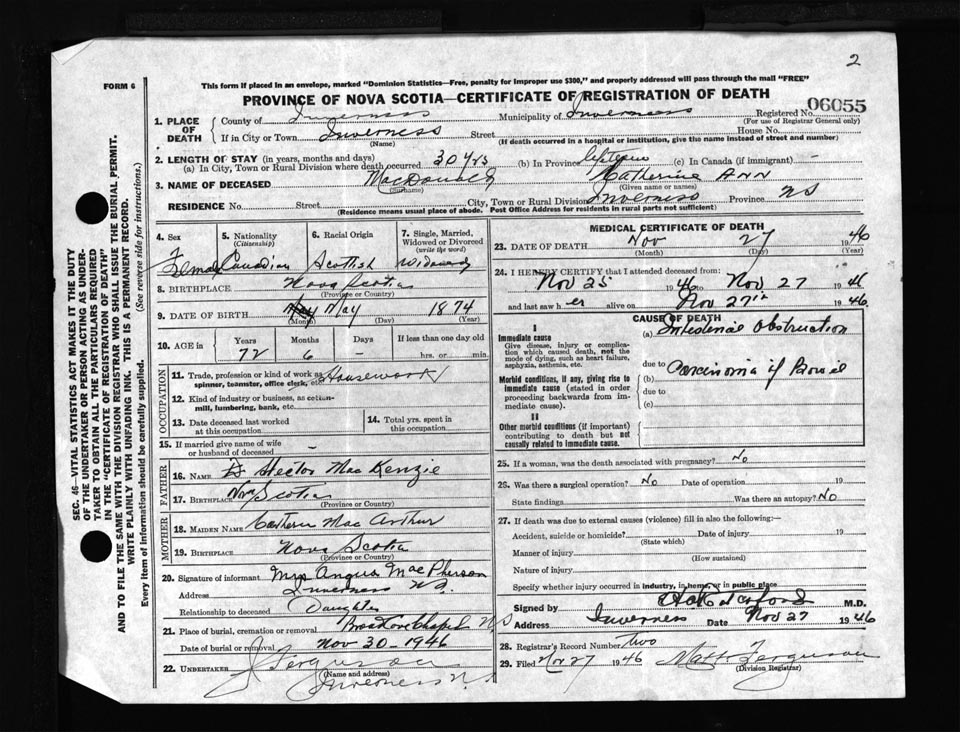 2
FORM 6
This form if placed in an envelope, marked "Dominion Statistics—Free, penalty for improper use $300," and properly addressed will pass through the mail "FREE"
PROVINCE OF NOVA SCOTIA—CERTIFICATE OF REGISTRATION OF DEATH
06055
1. PLACE OF DEATH County of Inverness Municipality of Inverness Registered No.
(For use of Registrar General only)
If in City or Town Inverness Street House No.
(Name) (If death occurred in a hospital or institution, give the name instead of street and number)
2. LENGTH OF STAY (in years, months and days)
(a) In City, Town or Rural Division where death occurred 30 yrs (b) In Province lifetime (c) In Canada (if immigrant) -
3. NAME OF DECEASED MacDonald Catherine Ann
(Surname) (Given name or names)
RESIDENCE No. Street City, Town or Rural Division Inverness Province NS
(Residence means usual place of abode. Post Office Address for residents in rural parts not sufficient)
4. Sex 5. Nationality (Citizenship) 6. Racial Origin 7. Single, Married, Widowed or Divorced (write the word)
Female Canadian Scottish Widowed
8. BIRTHPLACE Nova Scotia
(Province or Country)
9. DATE OF BIRTH May 1874
(Month) (Day) (Year)
10. AGE in Years Months Days If less than one day old
72 6 - hrs. or min.
OCCUPATION
11. Trade, profession or kind of work as spinner, teamster, office clerk, etc. Housework
12. Kind of industry or business, as cotton-mill, lumbering, bank, etc.
13. Date deceased last worked at this occupation
14. Total yrs. spent in this occupation
15. If married give name of wife or husband of deceased -
FATHER
16. NAME Hector MacKenzie
17. BIRTHPLACE Nova Scotia
MOTHER
18. MAIDEN NAME Mac Arthur
19. BIRTHPLACE Nova Scotia
(Province or Country)
20. Signature of informant Mrs Angus MacPherson
Address Inverness NS.
Relationship to deceased Daughter
21. Place of burial, cremation or removal NS
Date of burial or removal Nov 30-1946
22. UNDERTAKER J Ferguson
(Name and address)
Inverness NS
MEDICAL CERTIFICATE OF DEATH
23. DATE OF DEATH Nov 27 1946
(Month) (Day) (Year)
24. I HEREBY CERTIFY that I attended deceased from
Nov 25 1946 to Nov 27 1946
and last saw her alive on Nov 27th 1946
CAUSE OF DEATH
I
Immediate cause
Give disease, injury or complication which caused death, not the mode of dying, such as heart failure, asphyxia, asthenia, etc.
(a) Intestinal Obstruction
due to
Morbid conditions, if any, giving rise to immediate cause (stated in order proceeding backwards from immediate cause).
(b) Carcinoma of Bowel
due to
(c)
II
Other morbid conditions (if important) contributing to death but not causally related to immediate cause.
25. If a woman, was the death associated with pregnancy? No
26. Was there a surgical operation? No Date of operation 19
State findings Was there an autopsy? No
27. If death was due to external causes (violence) fill in also the following:—
Accident, suicide or homicide? Date of injury 19
(State which)
Manner of injury
(How sustained)
Nature of injury
Specify whether injury occurred in industry, in home, or in public place
Signed by M.D.
Address Inverness Date Nov 27 1946
28. Registrar's Record Number two
29. Filed Nov 27 1946 Ferguson
(Division Registrar)
SEC. 46—VITAL STATISTICS ACT MAKES IT THE DUTY
OF THE UNDERTAKER OR PERSON ACTING AS UNDER-
TAKER TO OBTAIN ALL THE PARTICULARS REQUIRED
IN THE "CERTIFICATE OF REGISTRATION OF DEATH"
AND TO FILE THE SAME WITH THE DIVISION REGISTRAR WHO SHALL ISSUE THE BURIAL PERMIT.
WRITE PLAINLY WITH UNFADING INK. THIS IS A PERMANENT RECORD.
Every item of information should be carefully supplied. (See reverse side for instructions.)